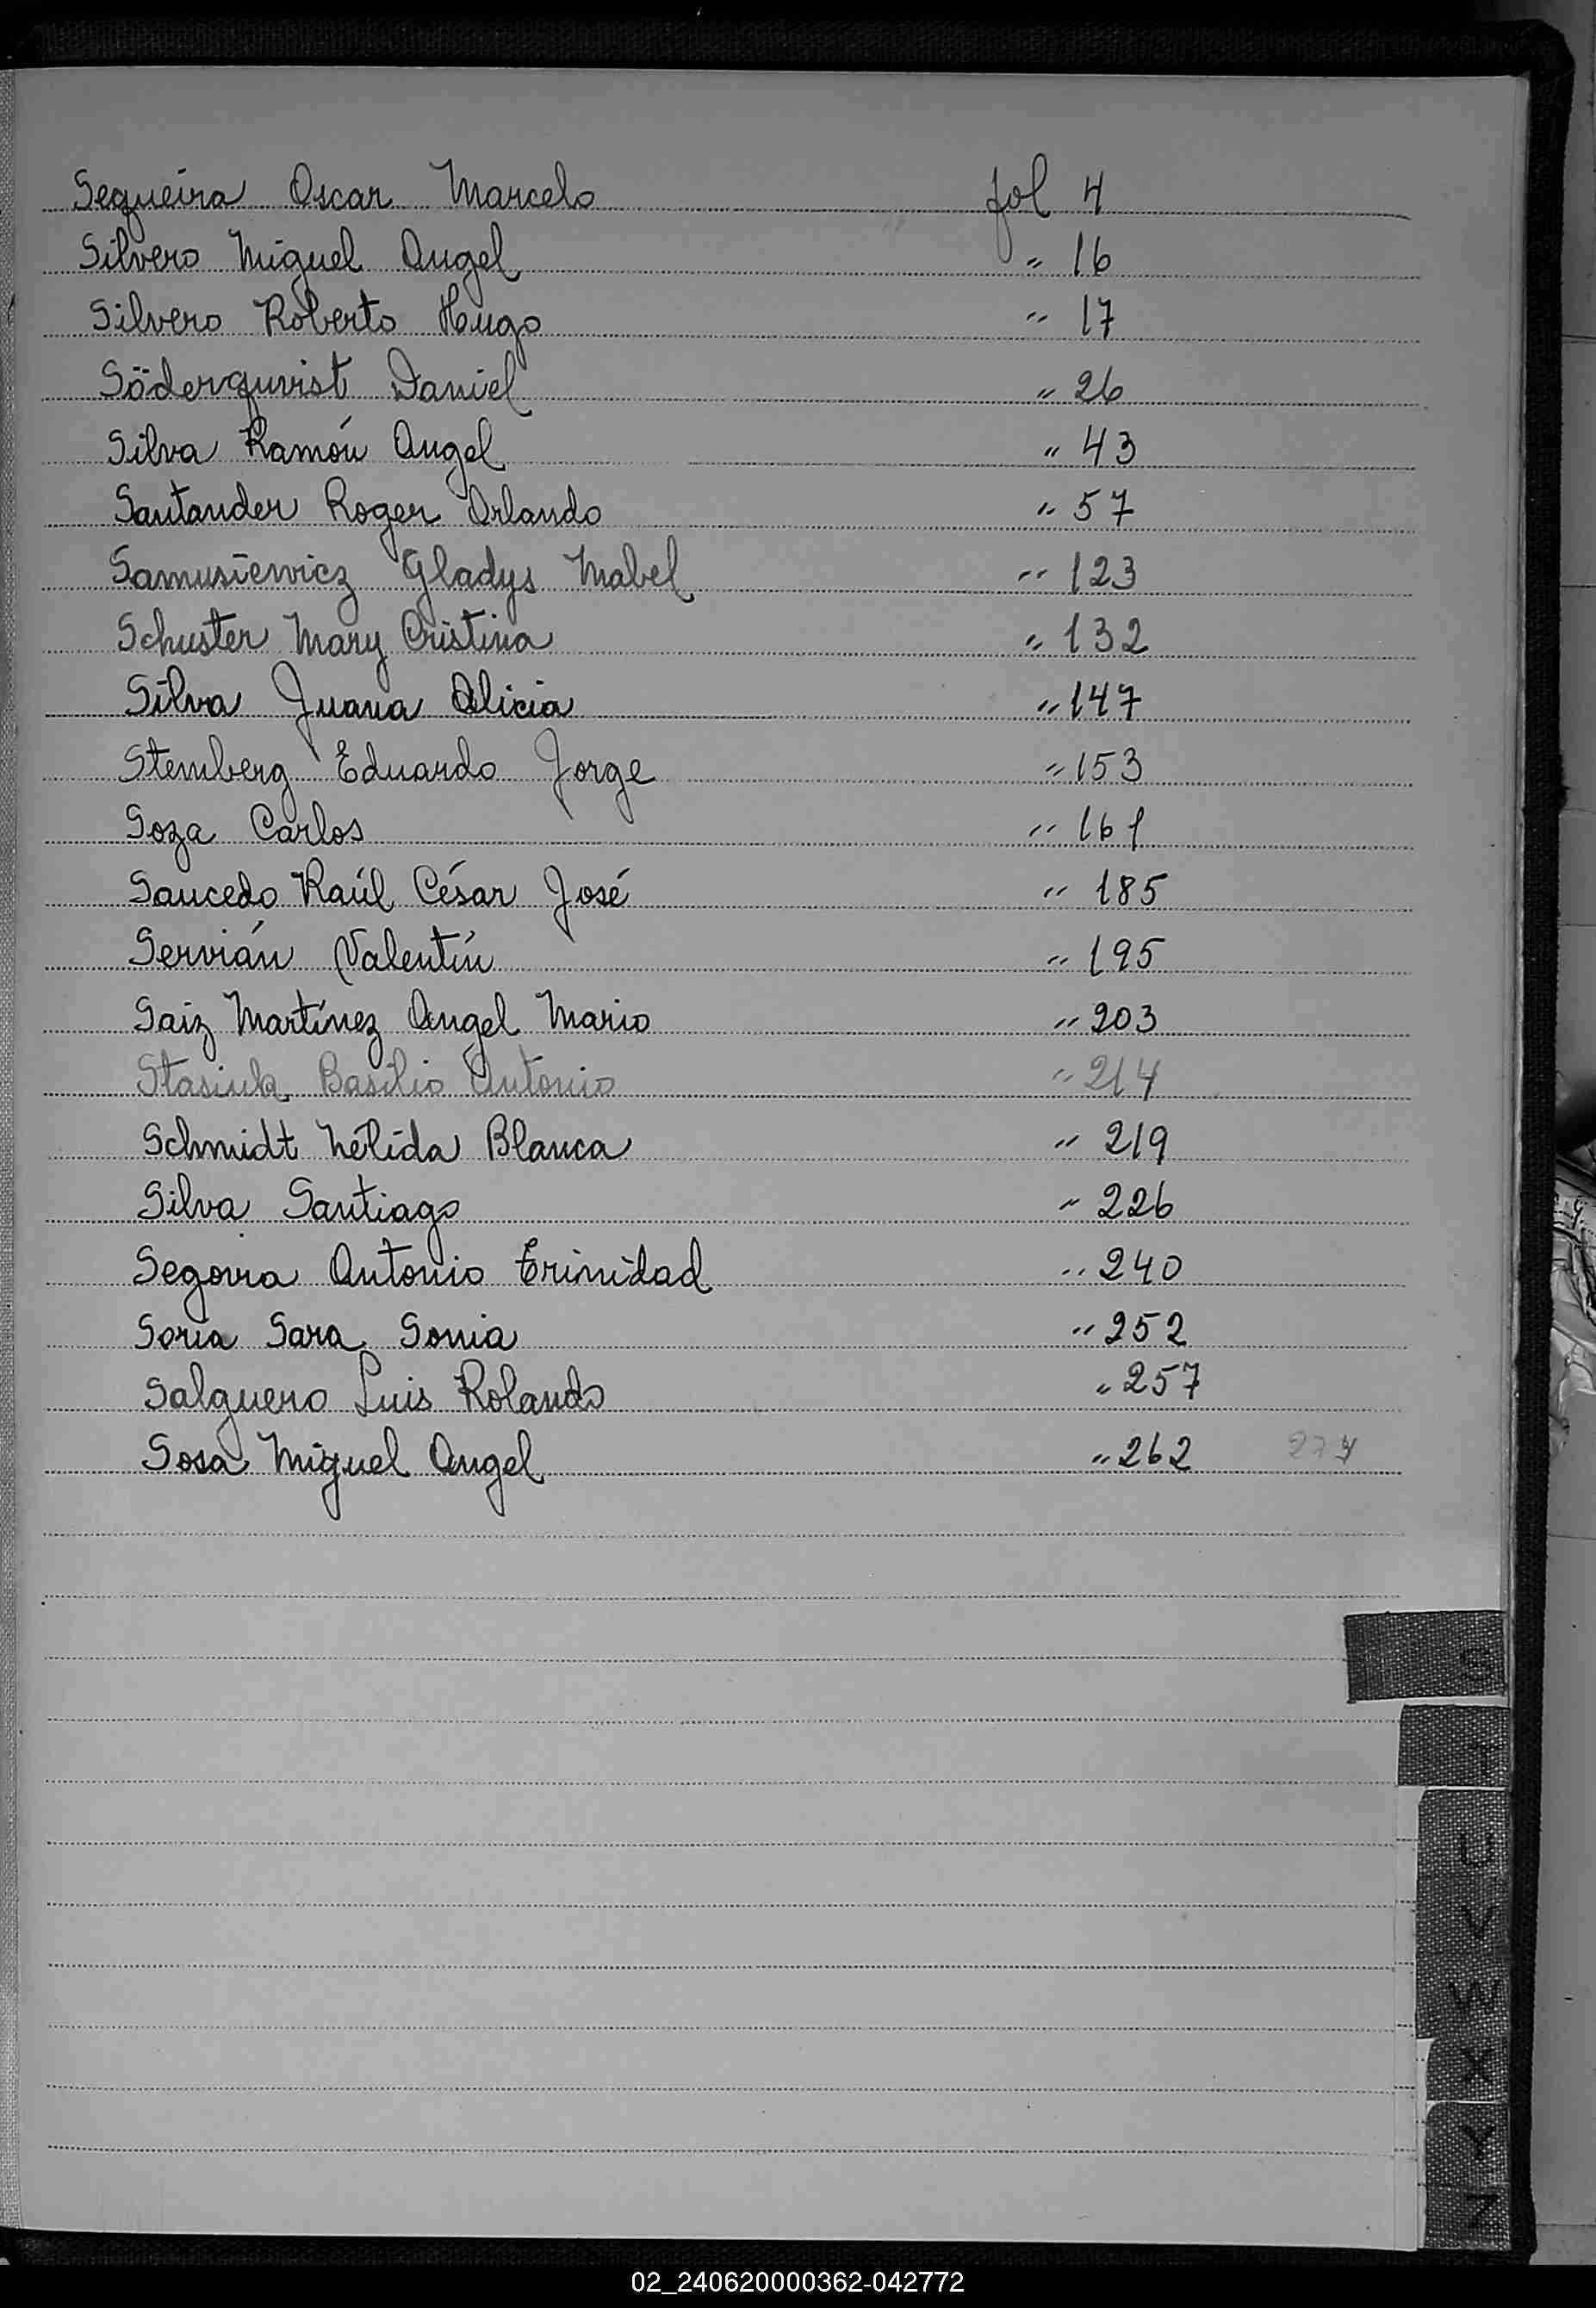 Sequeira Oscar Marcelo fol 4
Silvero Miguel Angel " 16
Silvero Roberto Hugo " 17
Söderquvist Daniel " 26
Silva Ramón Angel " 43
Santander Roger Orlando " 57
Samusiewicz Gladys Mabel " 123
Schuster Mary Cristina " 132
Silva Juana Alicia " 147
Stemberg Eduardo Jorge " 153
Soza Carlos " 161
Saucedo Raúl César José " 185
Servián Valentín " 195
Saiz Martínez Angel Mario " 203
Stasiuk Basilio Antonio " 214
Schmidt Nélida Blanca " 219
Silva Santiago " 226
Segovia Antonio Trinidad " 240
Soria Sara Sonia " 252
Salguero Luis Rolando " 257
Sosa Miguel Angel " 262 277
S
T
U
V
W
X
Y
Z
02_240620000362-042772